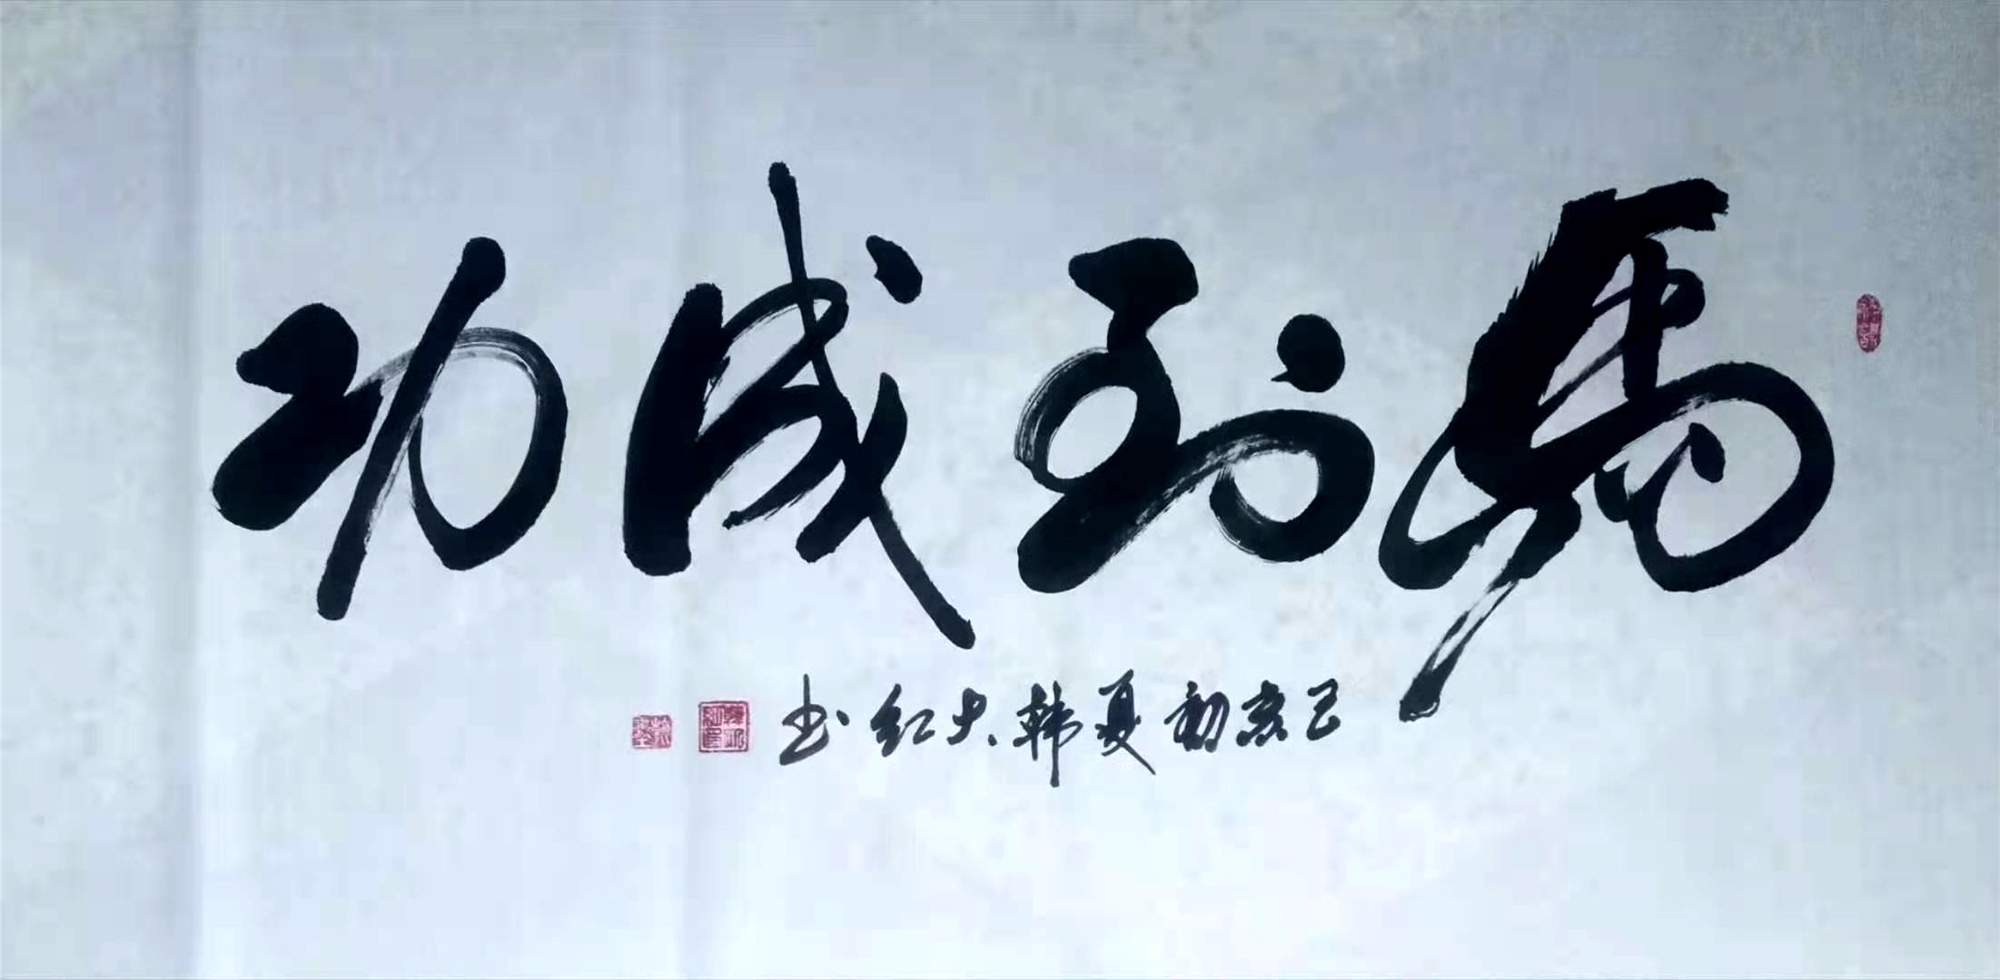 馬到成功
己亥初夏韩大红书